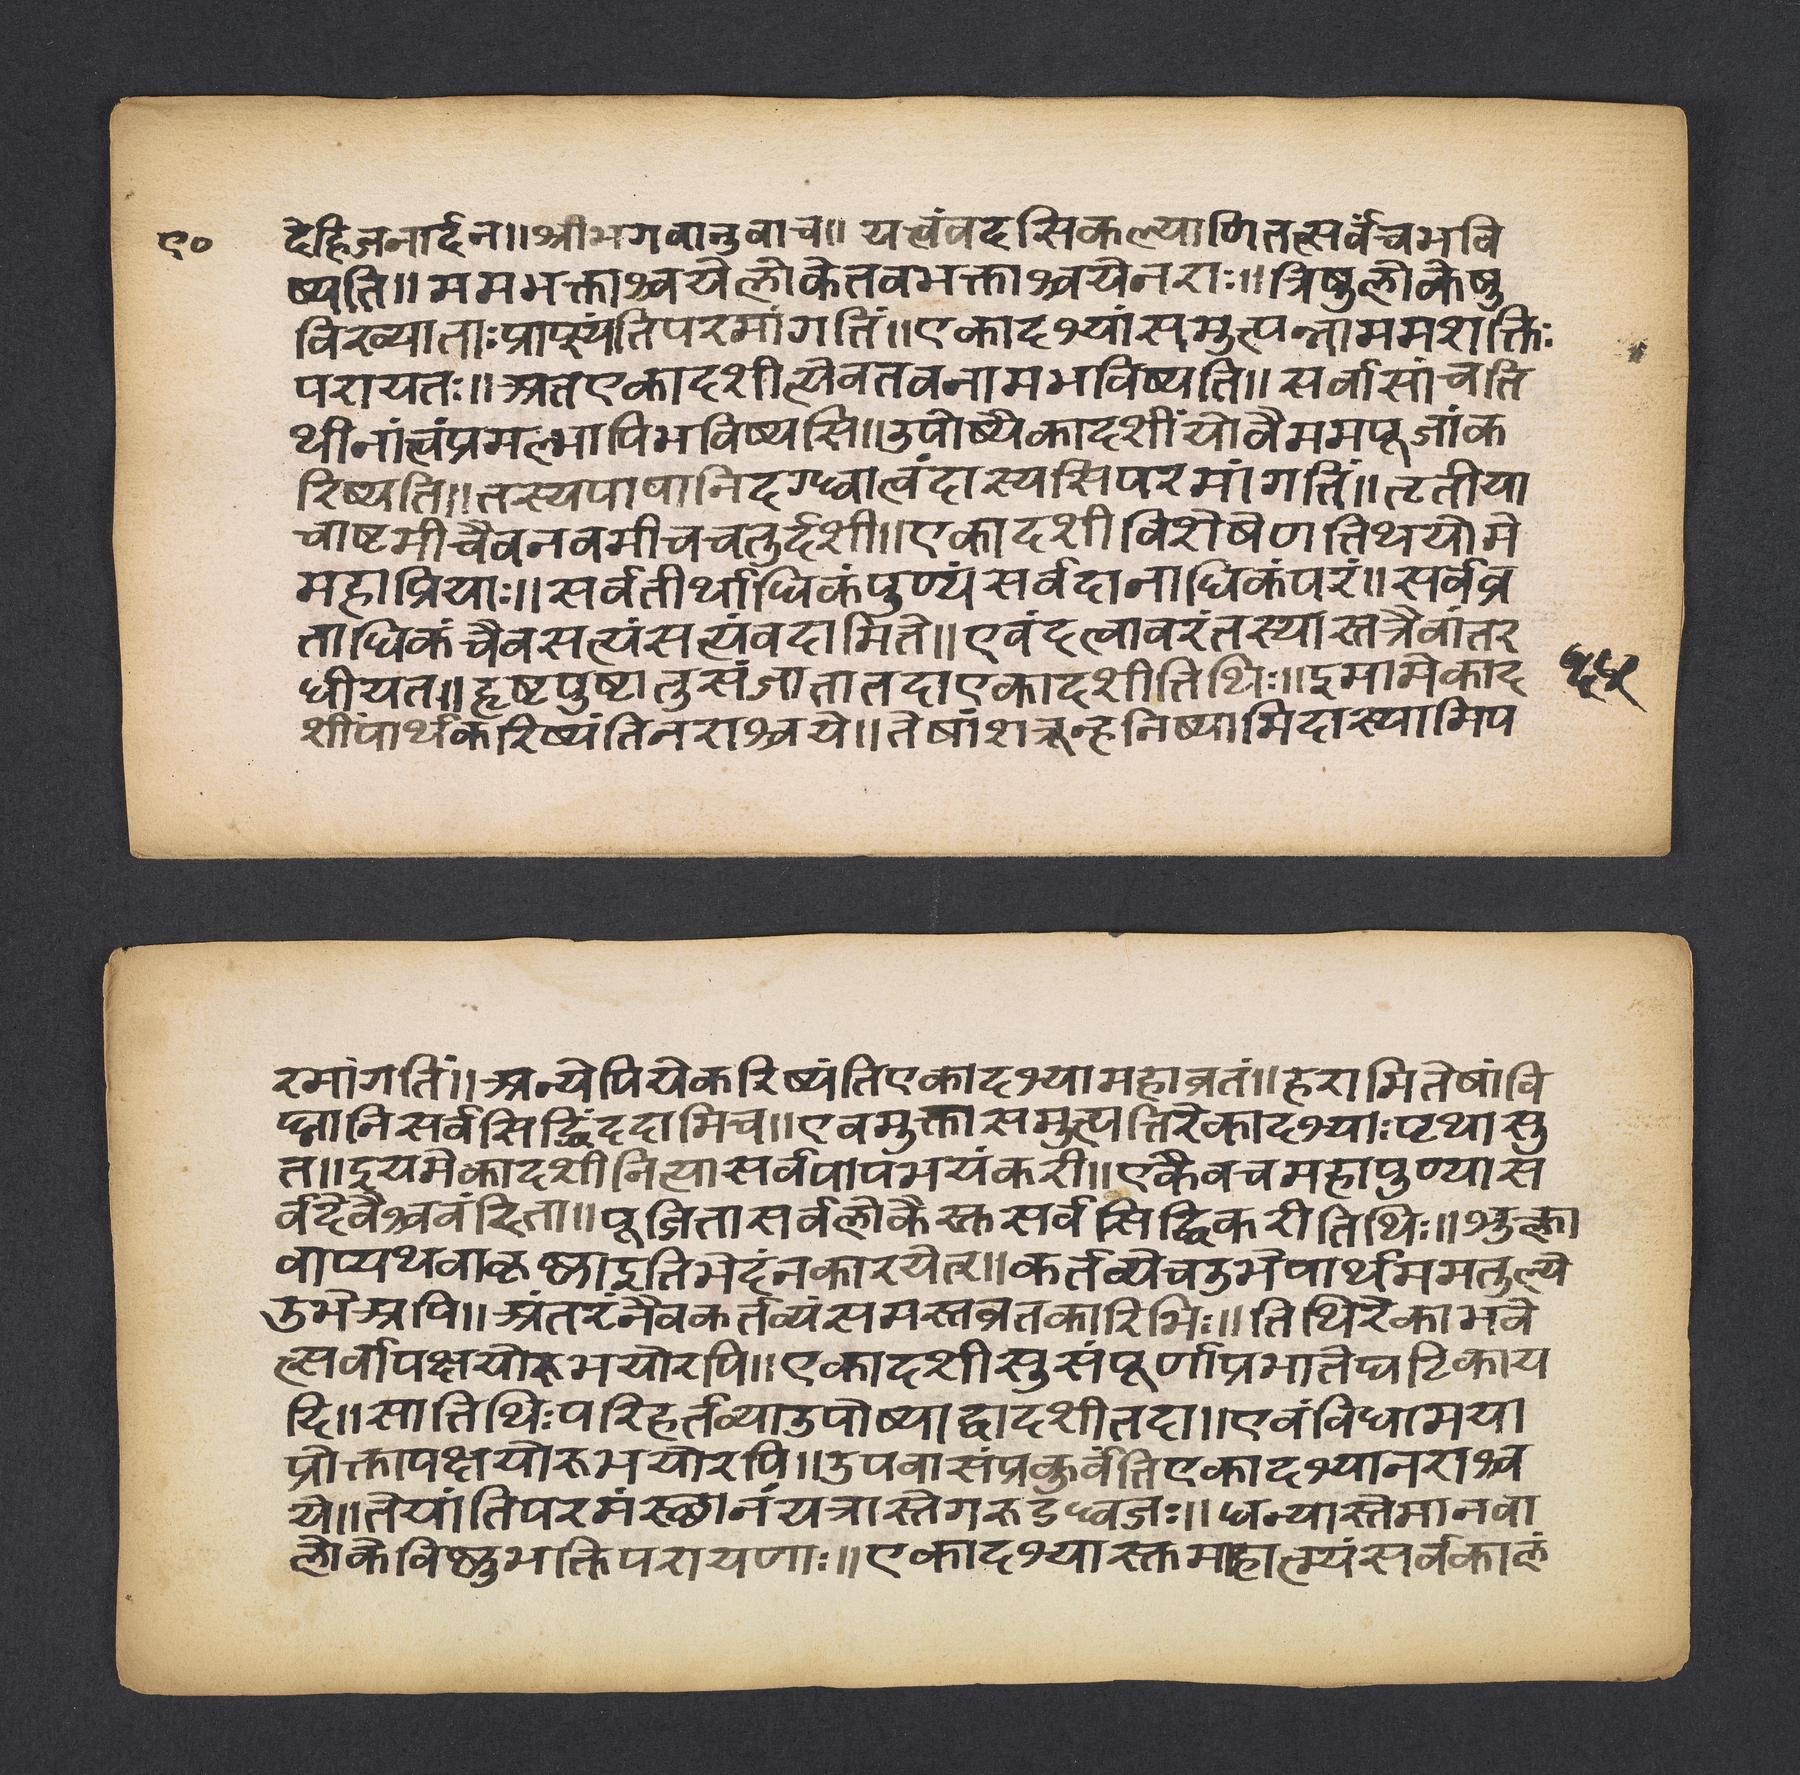 ९०
देहिजनार्दन॥श्रीभगवानुवाच॥ यत्त्वंवदसिकल्याणितत्सर्वंचभवि
ष्यति॥ ममभक्ताश्चयेलोकेतवभक्ताश्चयेनराः॥ त्रिषुलोकेषु
विख्याताःप्राप्स्यंतिपरमांगतिं॥एकादश्यांसमुत्पन्नाममशक्तिः
परायतः॥ अतएकादशीत्येवतवनामभविष्यति॥ सर्वासांचति
थीनांत्वंप्रमत्भापिभविष्यसि॥उपोष्यैकादशींयोवैममपूजांक
रिष्यति॥तस्यपापानिदग्ध्वात्वंदास्यसिपरमांगतिं॥ तृतीया
चाष्टमीचैवनवमीचचतुर्दशी॥एकादशीविशेषेणतिथयोमे
महाप्रियाः॥ सर्वतीर्थाधिकंपुण्यंसर्वदानाधिकंपरं॥ सर्वव्र
ताधिकंचैवसत्यंसत्यंवदामिते॥एवंदत्वावरंतस्यास्तत्रैवांतर
धीयत॥हृष्टपुष्टातुसंजातातदाएकादशीतिथिः॥इमामेकाद
१५
शींपार्थकरिष्यंतिनराश्चये॥ तेषांशत्रून्हनिष्यामिदास्यामिप
रमांगतिं॥अन्येपियेकरिष्यंतिएकादश्यामहाव्रतं॥हरामितेषांवि
घ्नानिसर्वसिद्धिंददामिच॥एवमुक्तासमुत्पत्तिरेकादश्याःपृथासु
त॥इयमेकादशीनित्यासर्वपापभयंकरी॥एकैवचमहापुण्यास
र्वदेवैश्चवंदिता॥पूजितासर्वलोकैस्तसर्वसिद्धिकरीतिथिः॥शुक्ला
वाप्यथवाकृष्णाइतिभेदंनकारयेत्॥कर्तव्येचउभेपार्थममतुल्ये
उभेअपि॥ अंतरंनैवकर्तव्यंसमस्तव्रतकारिभिः॥ तिथिरेकाभवे
त्सर्वापक्षयोरूभयोरपि॥एकादशीसुसंपूर्णाप्रभातेघटिकाय
दि॥सातिथिःपरिहर्तव्याउपोष्याद्वादशीतदा॥एवंविधामया
प्रोक्तापक्षयोरूभयोरपि॥उपवासंप्रकुर्वंतिएकादश्यानराश्च
ये॥तेयांतिपरमंस्छानंयत्रास्तेगरूडध्वजः॥धन्यास्तेमानवा
लोकेविष्णुभक्तिपरायणाः॥ एकादश्यास्तमाहात्म्यंसर्वकालं